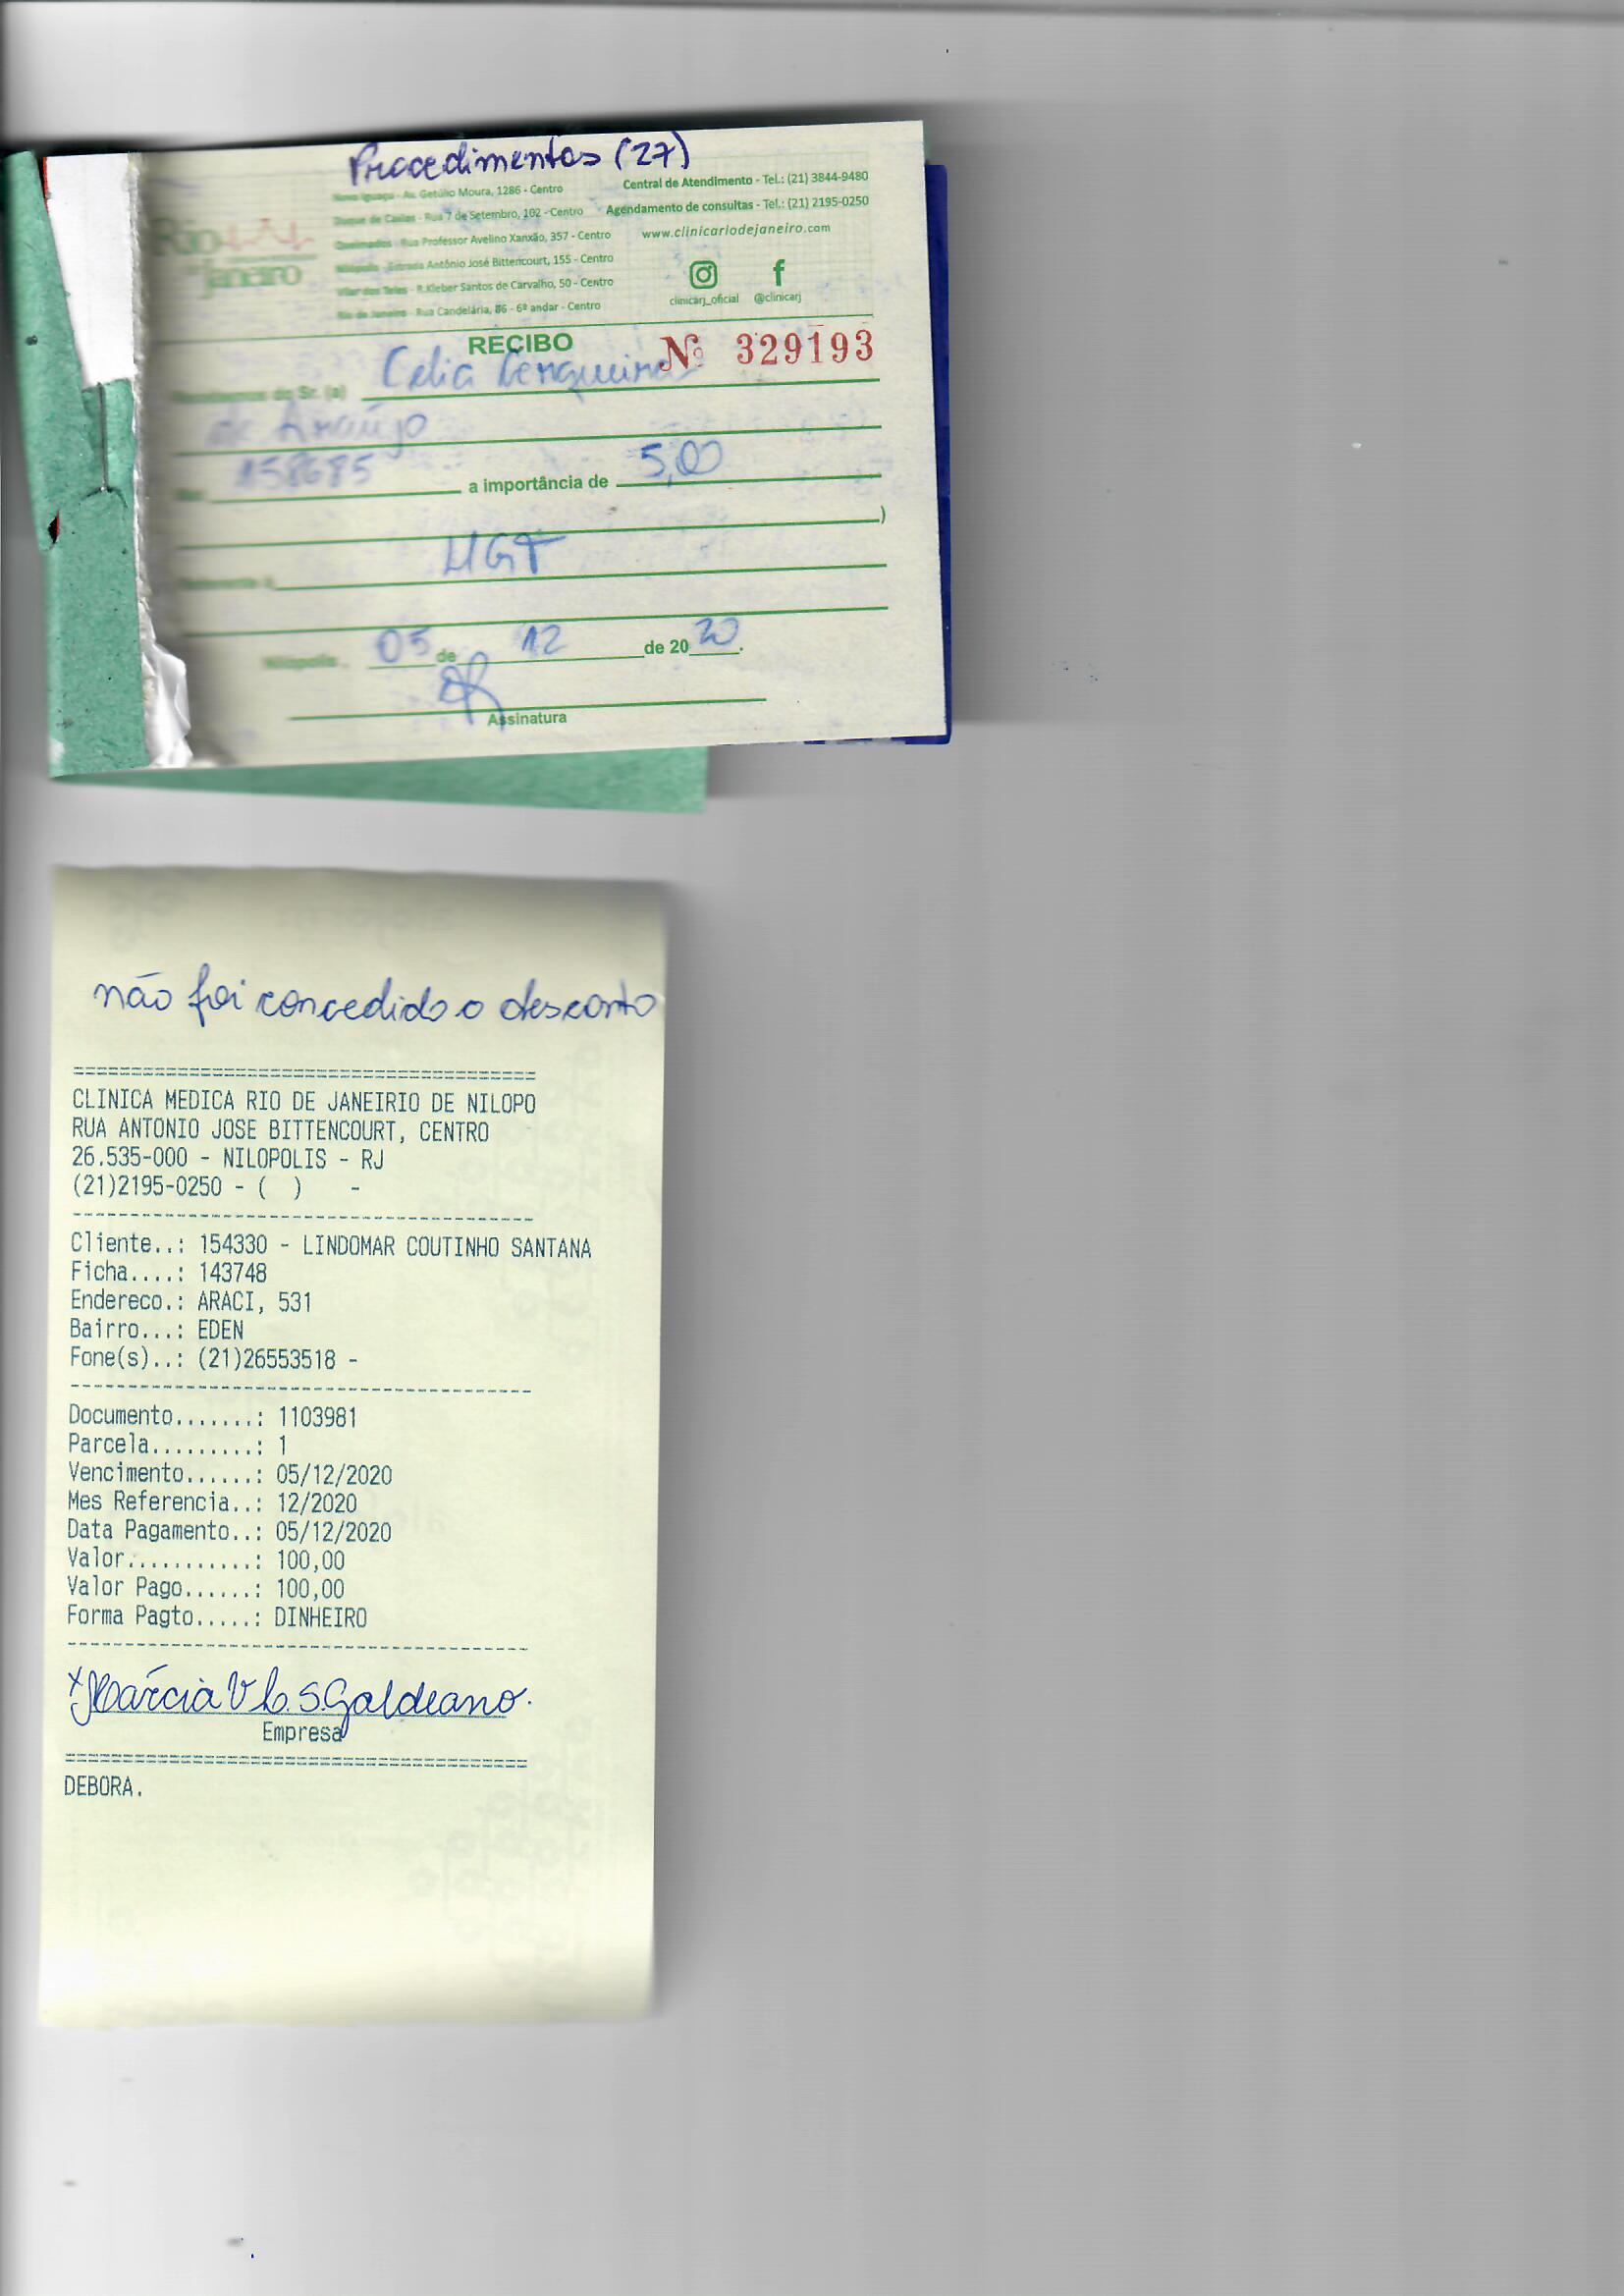 Procedimentos (27)
Nova Iguaçu - Av. Getúlio Moura, 1286 - Centro
Duque de Caxias - Rua 7 de Setembro, 102 - Centro
Queimados - Rua Professor Avelino Xanxão, 357 - Centro
Nilópolis - Estrada Antônio José Bittencourt, 155 - Centro
Vilar dos Teles - R. Kleber Santos de Carvalho, 50 - Centro
Rio de Janeiro - Rua Candelária, 86 - 6º andar - Centro
Central de Atendimento - Tel.: (21) 3844-9480
Agendamento de consultas - Tel.: (21) 2195-0250
www.clinicariodejaneiro.com
clinicarj_oficial @clinicarj
Rio
de Janeiro
RECIBO
Nº 329193
Recebemos do Sr. (a) Celia Cerqueira
de Araújo
158685 a importância de 5,00
)
Referente à
Nilópolis, 05 de 12 de 2020.
Assinatura
não foi concedido o desconto
CLINICA MEDICA RIO DE JANEIRIO DE NILOPO
RUA ANTONIO JOSE BITTENCOURT, CENTRO
26.535-000 - NILOPOLIS - RJ
(21)2195-0250 - ( ) -
Cliente..: 154330 - LINDOMAR COUTINHO SANTANA
Ficha....: 143748
Endereco.: ARACI, 531
Bairro...: EDEN
Fone(s)..: (21)26553518 -
Documento.......: 1103981
Parcela.........: 1
Vencimento......: 05/12/2020
Mes Referencia..: 12/2020
Data Pagamento..: 05/12/2020
Valor...........: 100,00
Valor Pago......: 100,00
Forma Pagto.....: DINHEIRO
x Márcia V L. S. Galdeano.
Empresa
DEBORA.